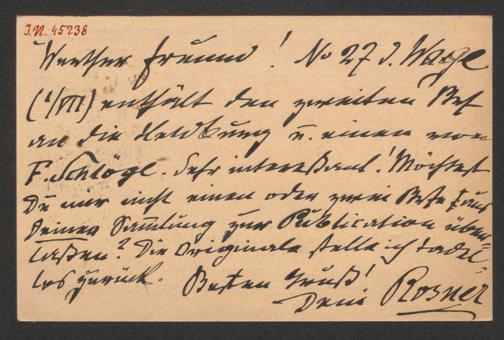 I.N. 45238
Werther Freund! No 27 d. Wage
(1/VII) enthält den zweiten Brief
an die Redbung u. einen von
F. Schlögl. Sehr interessant! Möchtest
Du mir nicht einen oder zwei Briefe aus
Deiner Sammlung zur Publication über-
laßen? Die Originale stelle ich tadel-
los zurück. Besten Gruß!
Dein Rosner